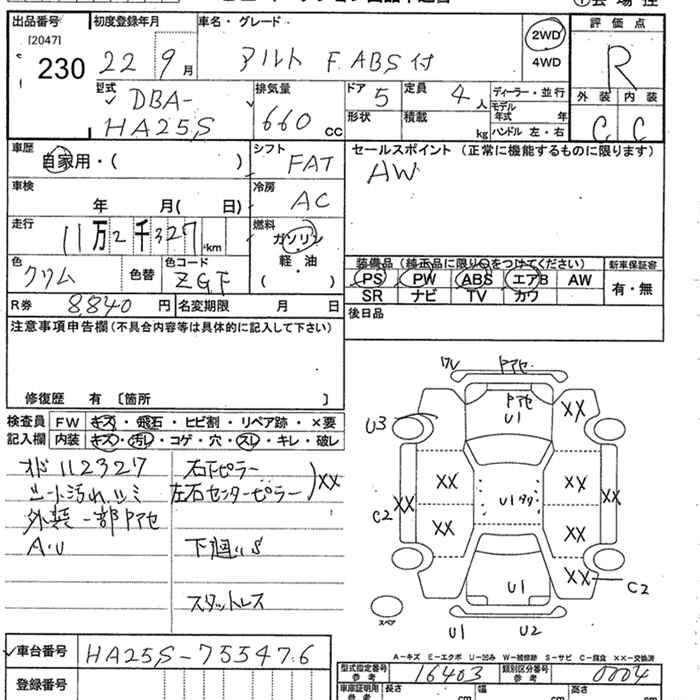 出品番号 初度登録年月 車名・グレード 評価点
[2047]
230 22 9月 アルト F.ABS付 2WD R
4WD
型式 排気量 ドア 定員 ディーラー・並行 外装 内装
DBA- 660 CC 5 4人 モデル年式 年 C C
HA25S 形状 積載 kg ハンドル 左・右
車歴 シフト セールスポイント (正常に機能するものに限ります)
自家用・( ) FAT AW
車検 冷房
年 月( 日) AC
走行 燃料
11万2千327km ガソリン
軽・油
( )
色 色替 色コード 装備品 (純正品に限り○をつけてください) 新車保証書
クリム ZGF PS PW ABS エアB AW 有・無
SR ナビ TV カワ
R券 8,840円 名変期限 月 日 後日品
注意事項申告欄(不具合内容等は具体的に記入して下さい)
修復歴 有 〔箇所 〕
検査員 FW キズ・飛石・ヒビ割・リペア跡・×要
記入欄 内装 キズ・汚レ・コゲ・穴・スレ・キレ・破レ
メド 112327 右下ピラー
シート汚れ シミ 左右センターピラー XX
外装一部ドアセ
A・U 下廻りS
スタットレス
U3 U1 XX
XX U1 XX
XX C2 XX XX
XX XX
U1 XX C2
スペア U1 U2
A-キズ E-エクボ U-凹み W-補修跡 S-サビ C-腐食 ××-交換済
車台番号 HA25S-755476 型式指定番号 参考 16403 類別区分番号 参考 0004
登録番号 車庫証明用 参考 長さ cm 幅 cm 高さ cm